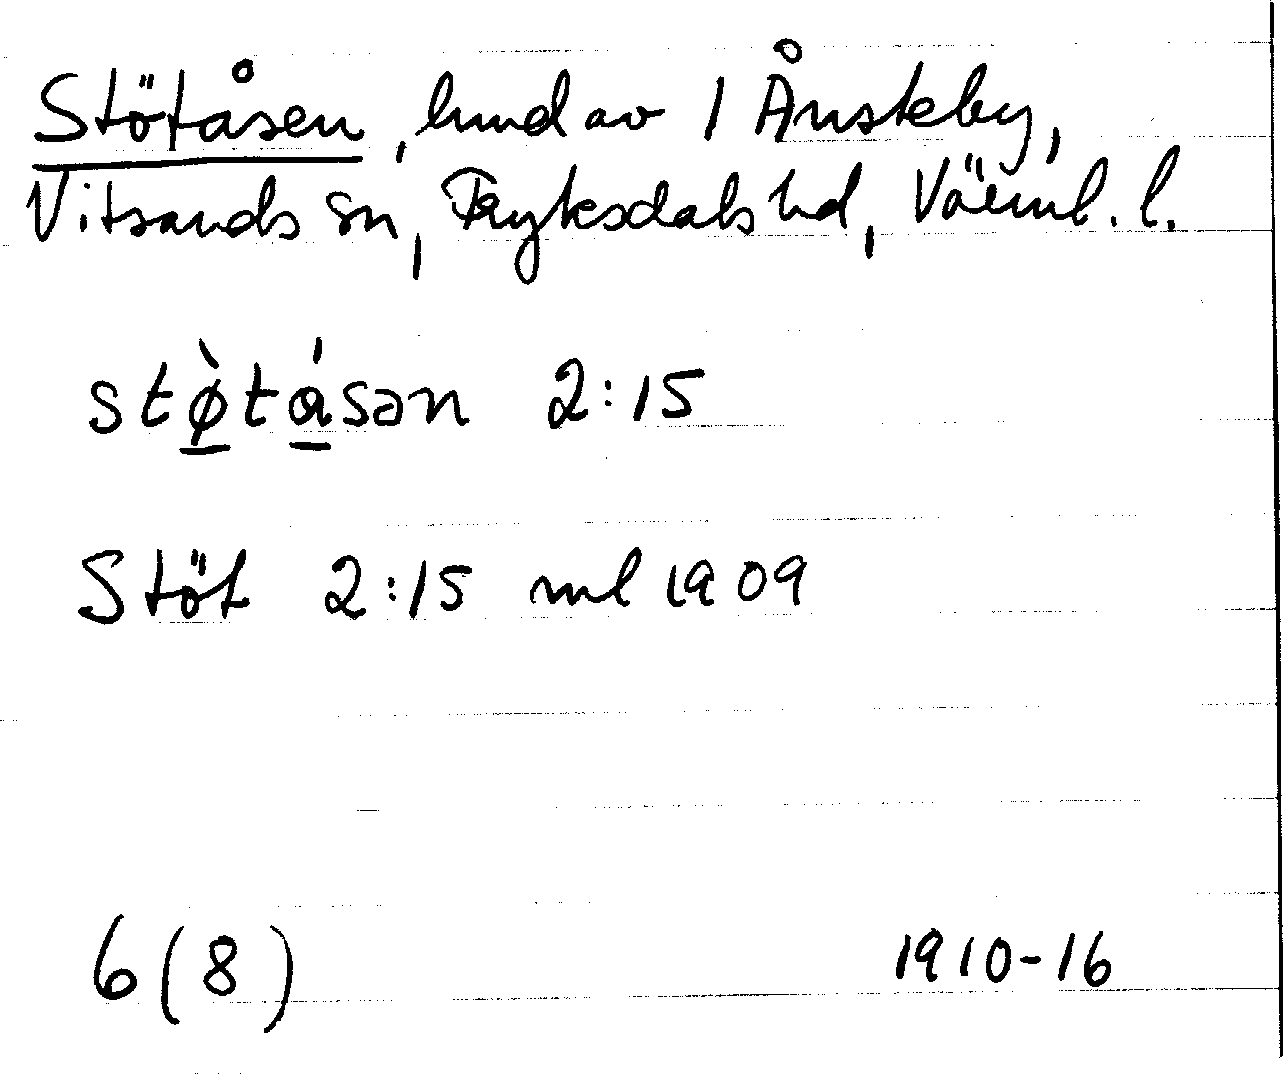 Stötåsen, hmd av 1 Ånsteby,
Vitsands sn, Fryksdals hd, Värml. l.
stø̀tásən 2:15
Stöt 2:15 ml 1909
6(8) 1910-16